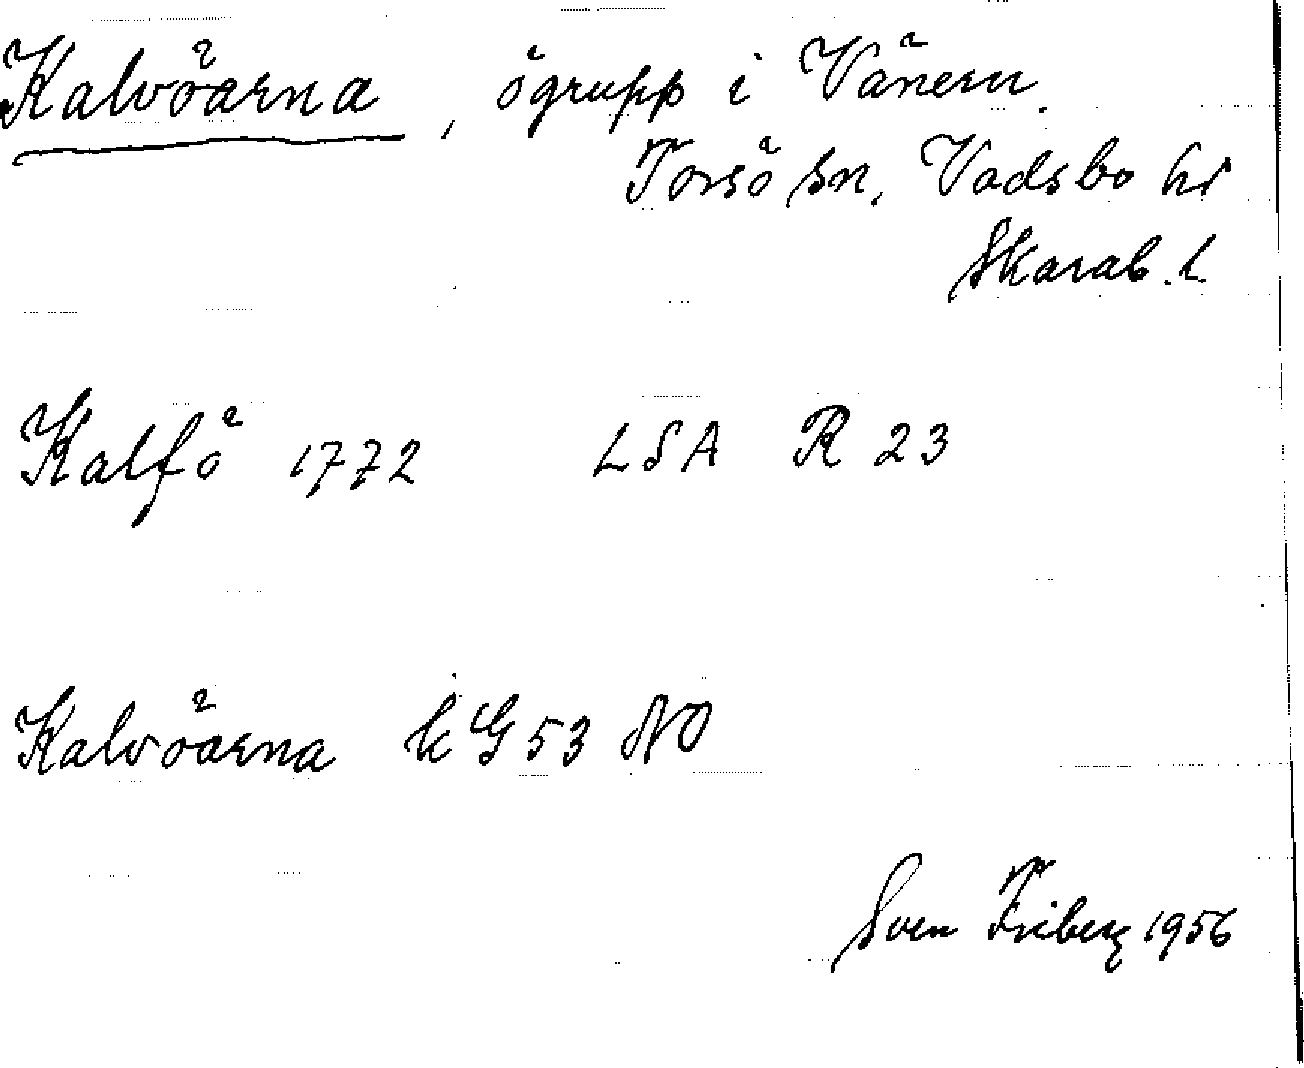 Kalvöarna, ögrupp i Vänern.
Torsö sn, Vadsbo hd
Skarab. l.
Kalfö 1772 LSA R 23
Kalvöarna k G 53 NO
Sven Friberg 1956